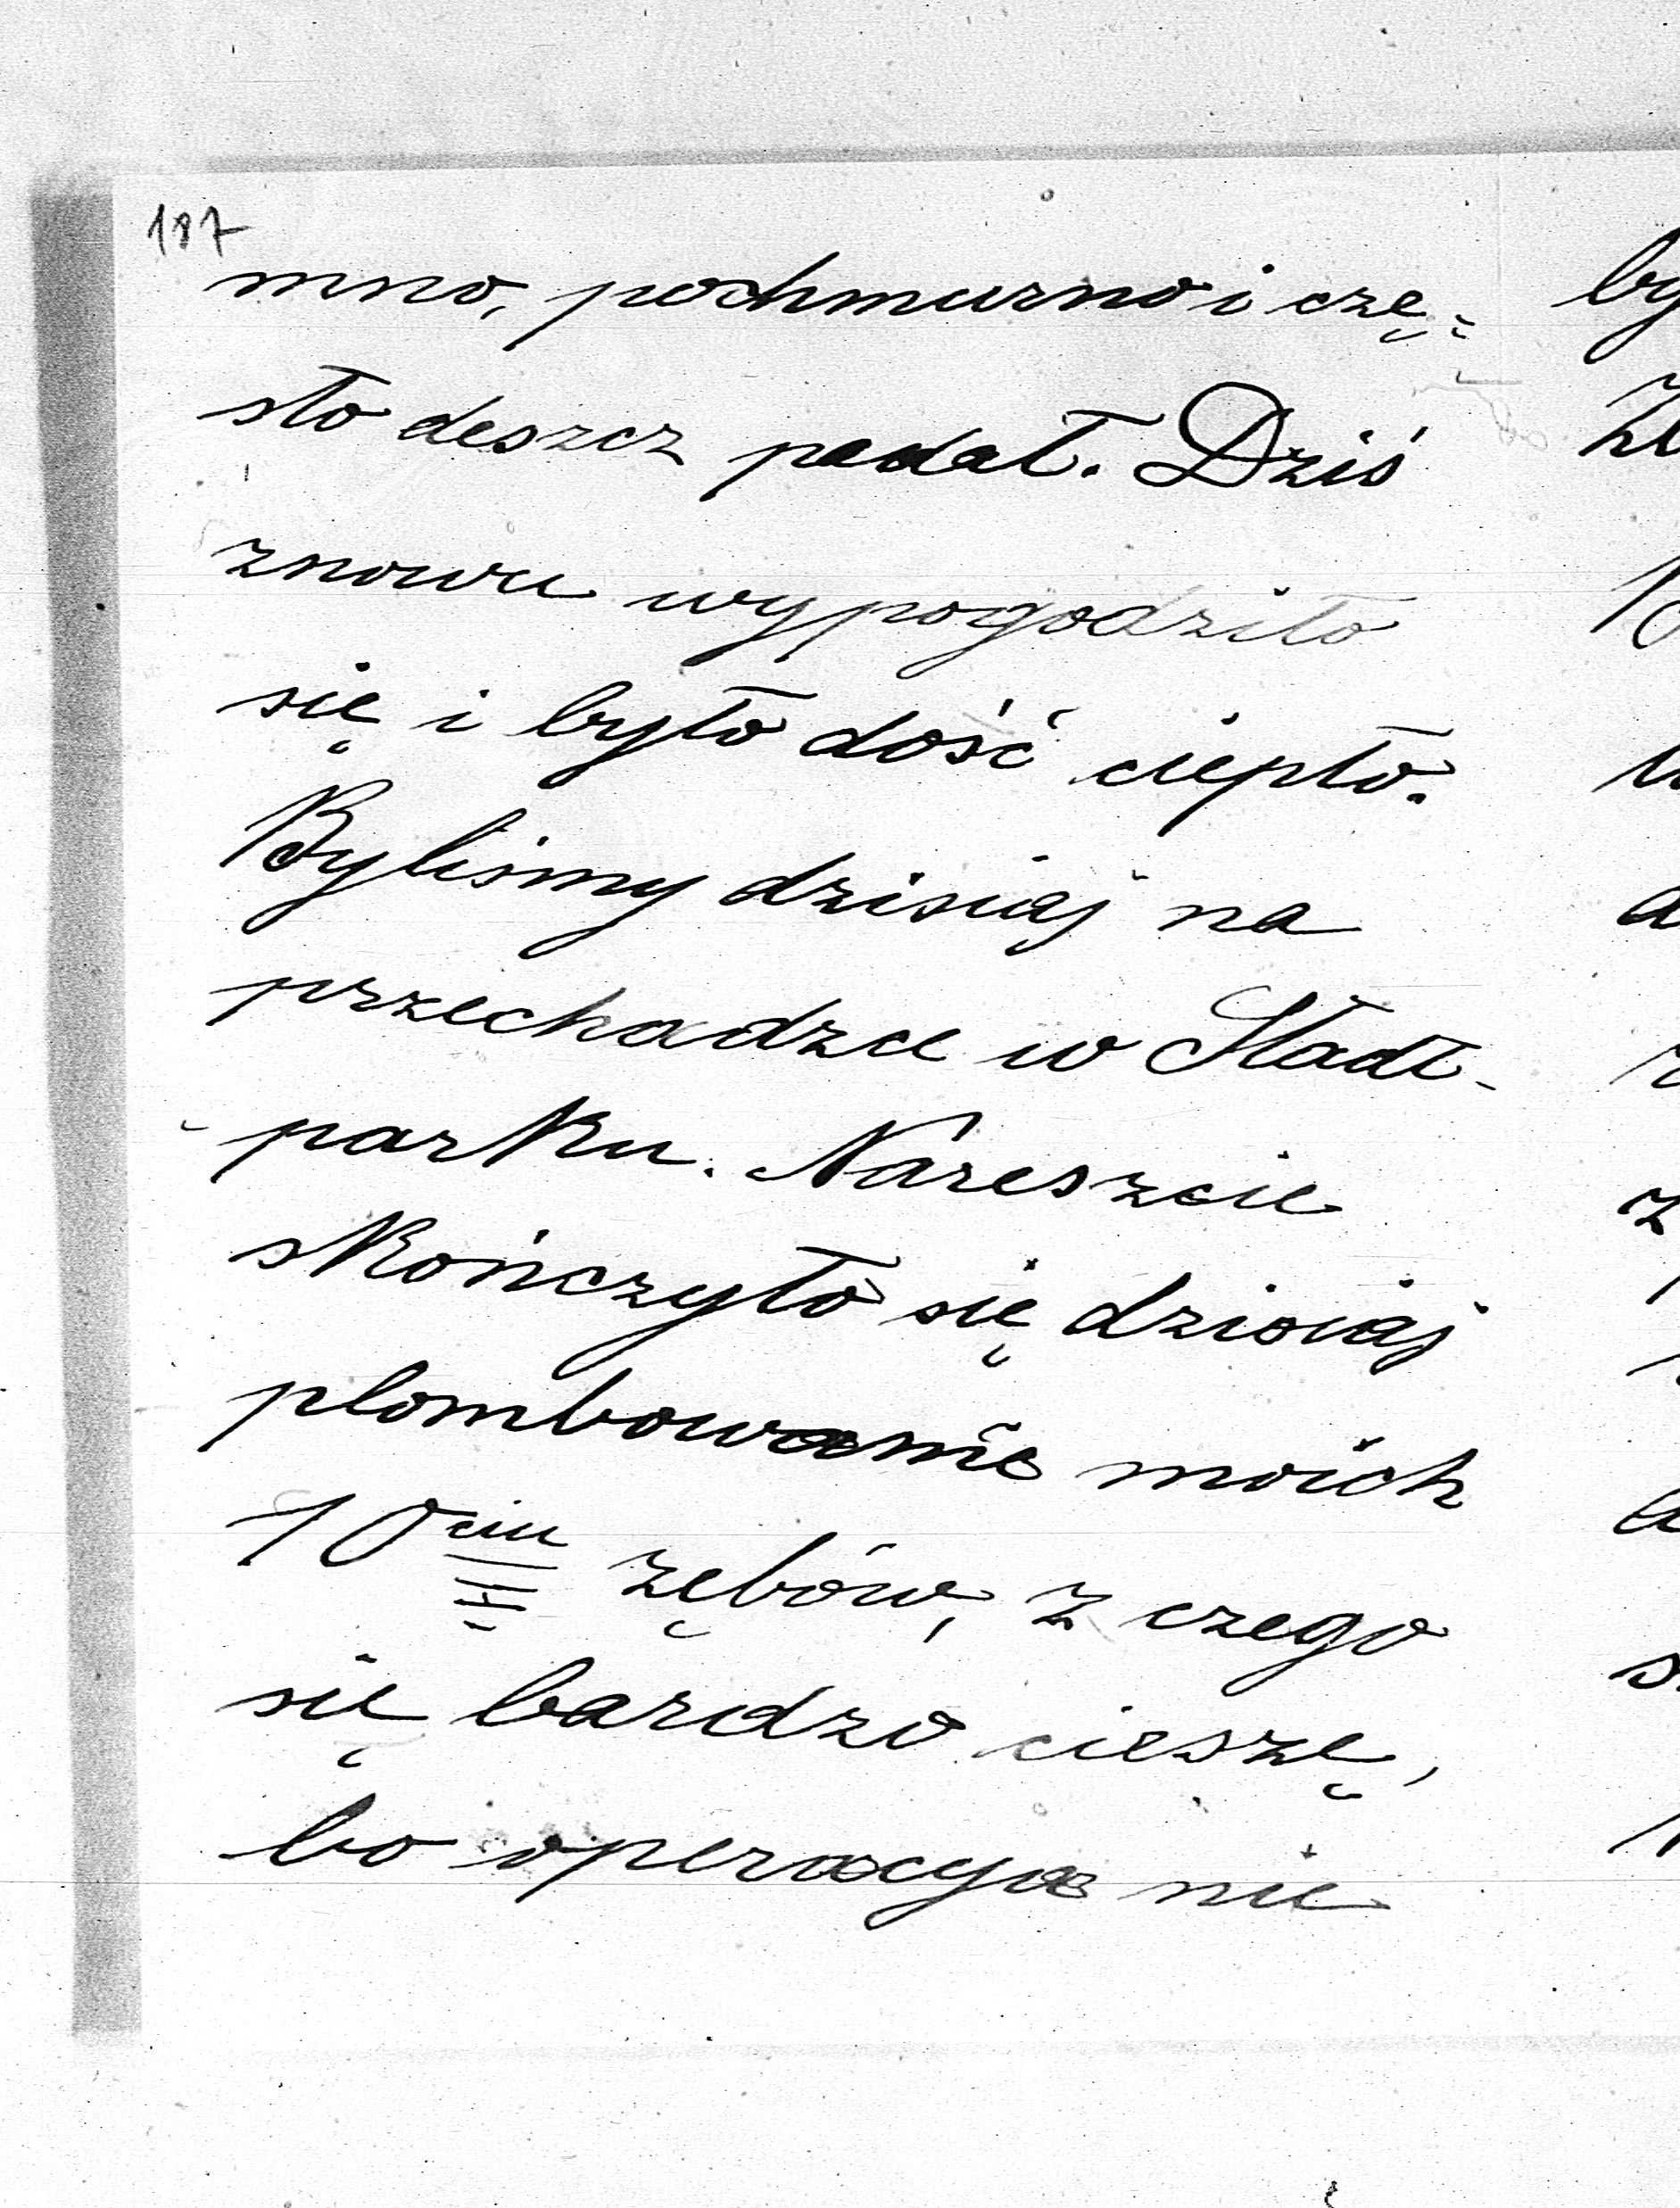 187
mno, pochmurno i czę-
sto deszcz padał. Dziś
znowu wypogodziło
się i było dość ciepło.
Byliśmy dzisiaj na
przechadzce w Stadt-
-parku. Nareszcie
skończyło się dzisiaj
plombowanie moich
10ciu zębów, z czego
się bardzo cieszę,
bo operacya nie